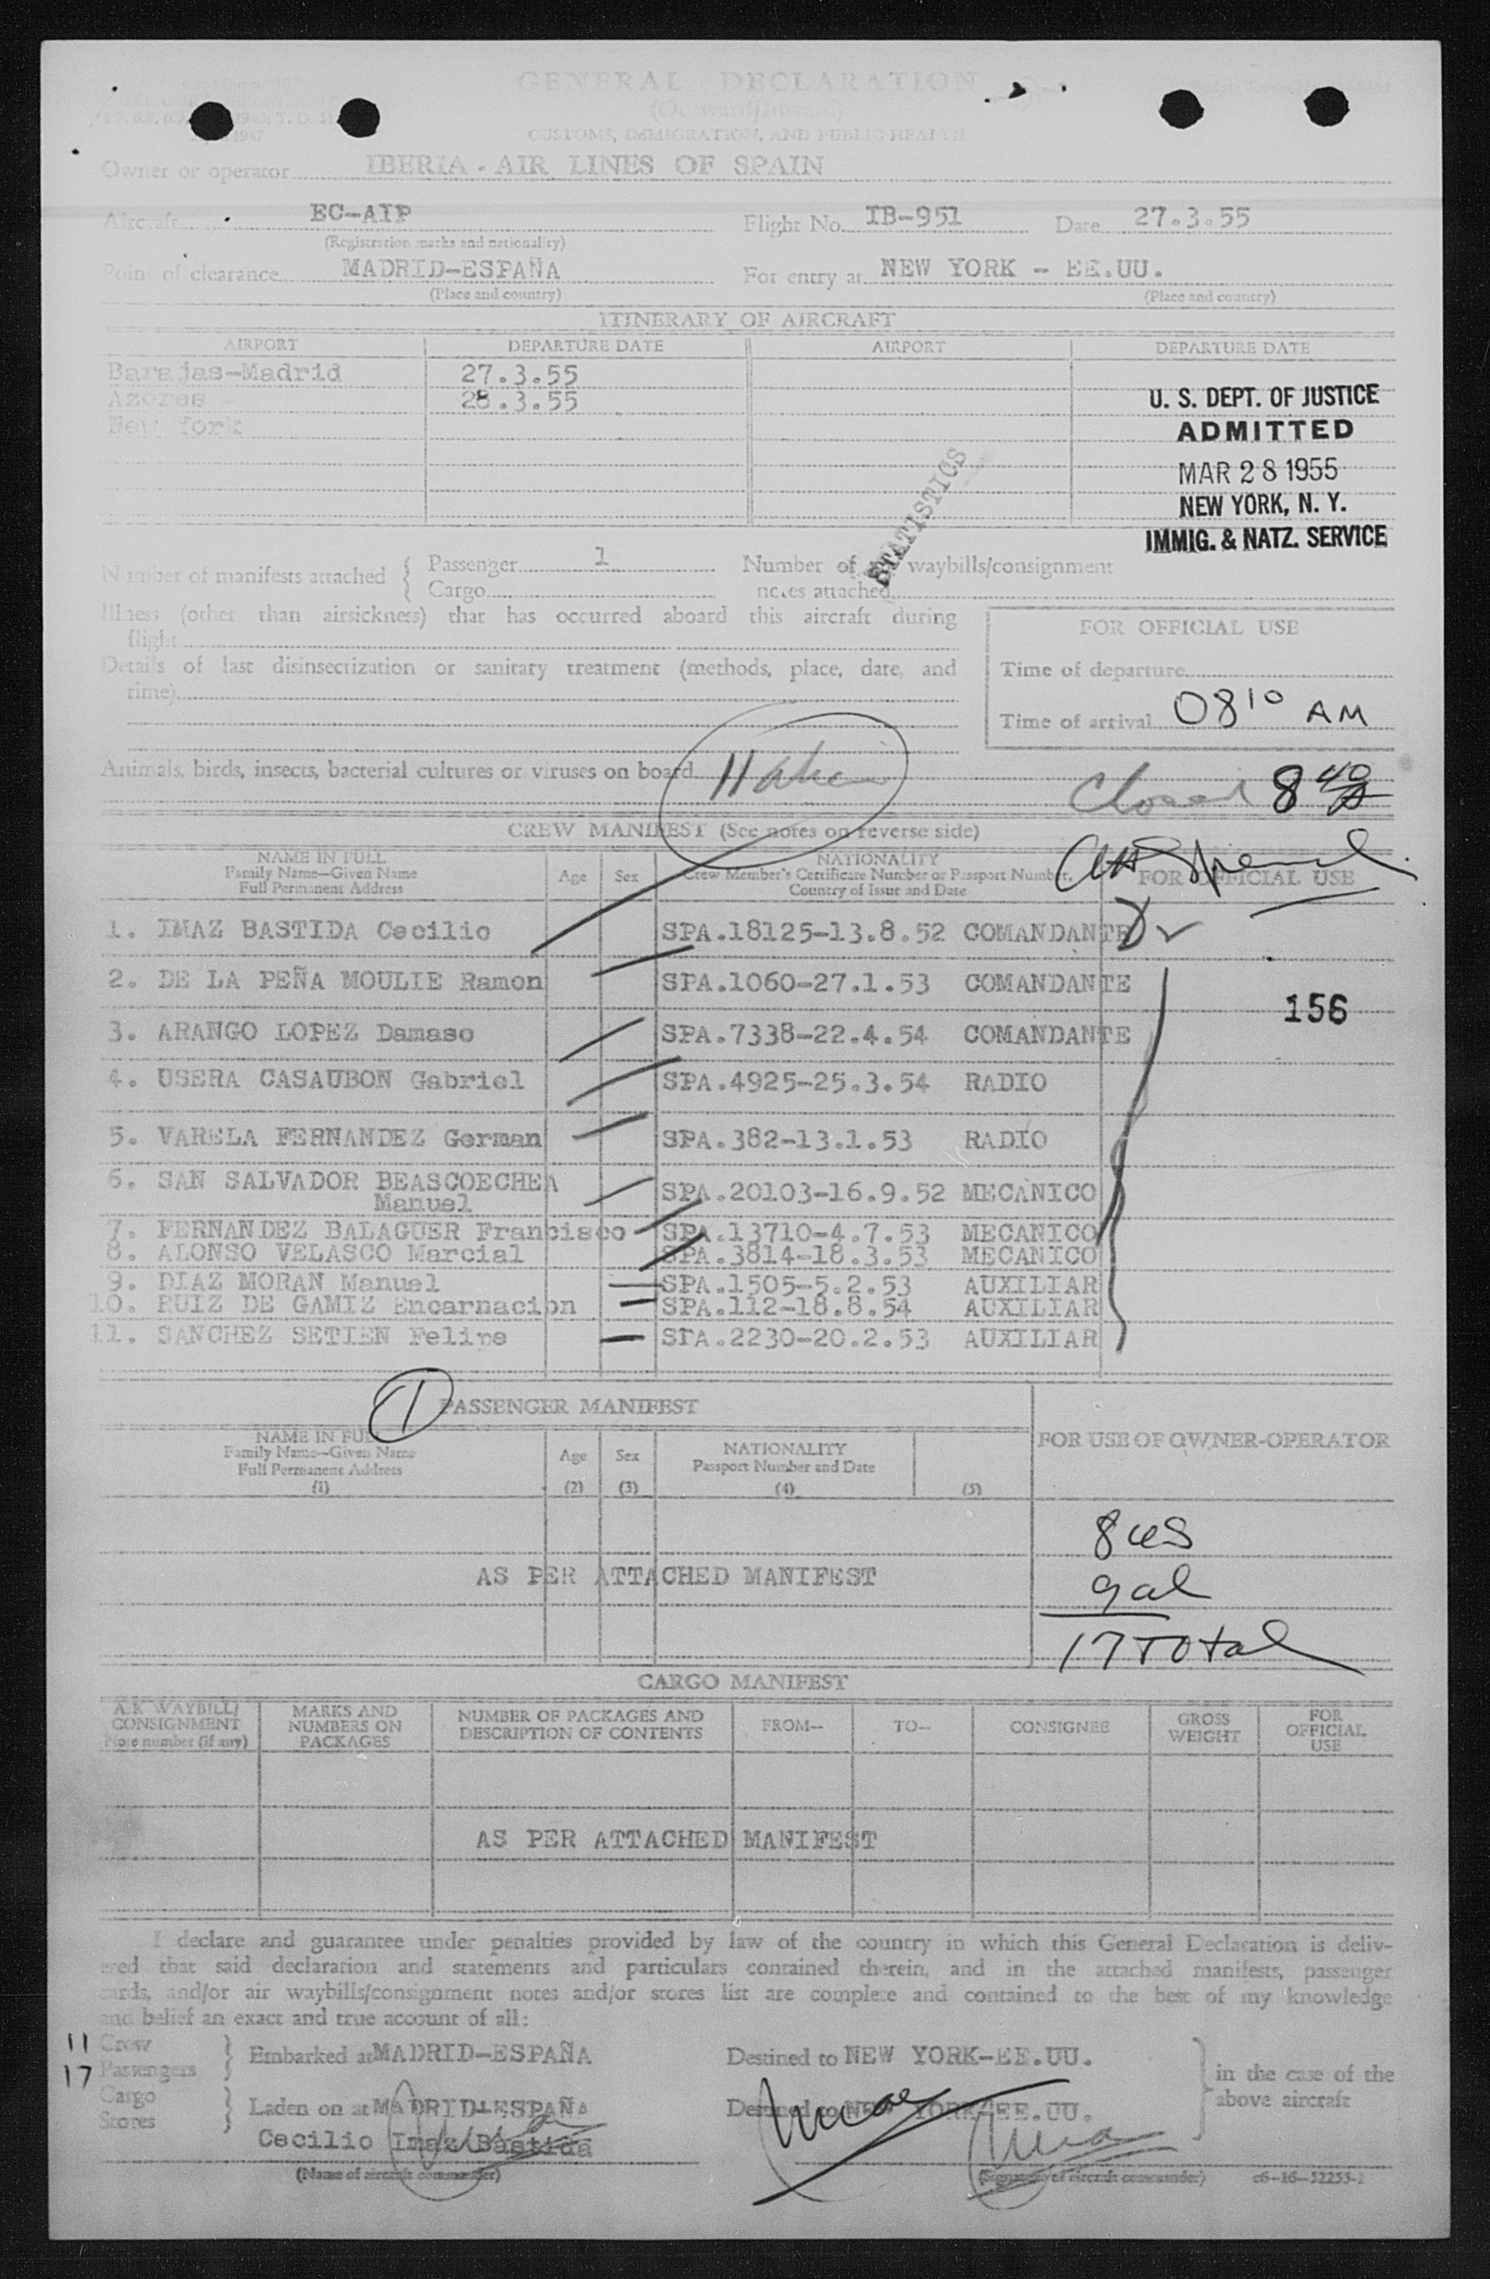 GENERAL DECLARATION
(Outward/Inward)
CUSTOMS, IMMIGRATION, AND PUBLIC HEALTH
Owner or operator IBERIA - AIR LINES OF SPAIN
Aircraft EC-AIP Flight No. IB-951 Date 27.3.55
(Registration marks and nationality)
Point of clearance MADRID-ESPAÑA For entry at NEW YORK - EE.UU.
(Place and country) (Place and country)
ITINERARY OF AIRCRAFT
AIRPORT DEPARTURE DATE AIRPORT DEPARTURE DATE
Barajas-Madrid 27.3.55
Azores 28.3.55
New York
U. S. DEPT. OF JUSTICE
ADMITTED
MAR 28 1955
NEW YORK, N. Y.
IMMIG. & NATZ. SERVICE
STATISTICS
Number of manifests attached { Passenger 1 Number of waybills/consignment
Cargo notes attached
Illness (other than airsickness) that has occurred aboard this aircraft during
flight
Details of last disinsectization or sanitary treatment (methods, place, date, and
time)
FOR OFFICIAL USE
Time of departure
Time of arrival 0810 AM
Animals, birds, insects, bacterial cultures or viruses on board
11 alien
Closed 8
CREW MANIFEST (See notes on reverse side)
NAME IN FULL
Family Name—Given Name
Full Permanent Address
Age Sex
NATIONALITY
Crew Member's Certificate Number or Passport Number,
Country of Issue and Date
FOR OFFICIAL USE
1. IMAZ BASTIDA Cecilio SPA.18125-13.8.52 COMANDANTE
2. DE LA PEÑA MOULIE Ramon SPA.1060-27.1.53 COMANDANTE
156
3. ARANGO LOPEZ Damaso SPA.7338-22.4.54 COMANDANTE
4. USERA CASAUBON Gabriel SPA.4925-25.3.54 RADIO
5. VARELA FERNANDEZ German SPA.382-13.1.53 RADIO
6. SAN SALVADOR BEASCOECHEA
Manuel SPA.20103-16.9.52 MECANICO
7. FERNANDEZ BALAGUER Francisco SPA.13710-4.7.53 MECANICO
8. ALONSO VELASCO Marcial SPA.3814-18.3.53 MECANICO
9. DIAZ MORAN Manuel SPA.1505-5.2.53 AUXILIAR
10. RUIZ DE GAMIZ Encarnacion SPA.112-18.8.54 AUXILIAR
11. SANCHEZ SETIEN Felipe SPA.2230-20.2.53 AUXILIAR
1 PASSENGER MANIFEST
NAME IN FULL
Family Name—Given Name
Full Permanent Address
(1)
Age
(2)
Sex
(3)
NATIONALITY
Passport Number and Date
(4) (5)
FOR USE OF OWNER-OPERATOR
8 us
AS PER ATTACHED MANIFEST
9 al
17 Total
CARGO MANIFEST
AIR WAYBILL/
CONSIGNMENT
Note number (if any)
MARKS AND
NUMBERS ON
PACKAGES
NUMBER OF PACKAGES AND
DESCRIPTION OF CONTENTS
FROM— TO— CONSIGNEE
GROSS
WEIGHT
FOR
OFFICIAL
USE
AS PER ATTACHED MANIFEST
I declare and guarantee under penalties provided by law of the country in which this General Declaration is deliv-
ered that said declaration and statements and particulars contained therein, and in the attached manifests, passenger
cards, and/or air waybills/consignment notes and/or stores list are complete and contained to the best of my knowledge
and belief an exact and true account of all:
11 Crew
17 Passengers
Embarked at MADRID-ESPAÑA Destined to NEW YORK-EE.UU.
in the case of the
above aircraft
Cargo
Stores
Laden on at MADRID-ESPAÑA Destined to NEW YORK-EE.UU.
Cecilio Imaz Bastida
(Name of aircraft commander) (Signature of aircraft commander) c6-16-52255-1